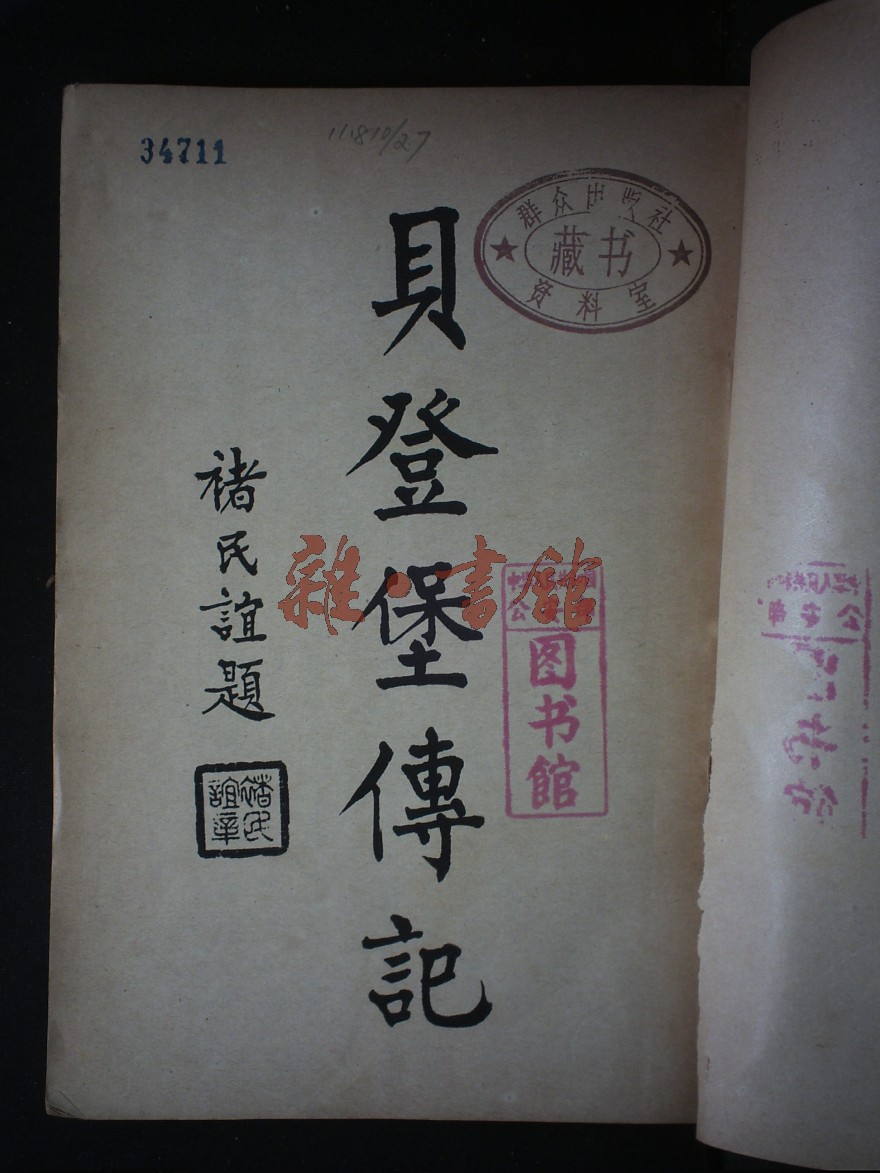 34711
11810/27
群众出版社
藏书
资料室
貝登堡傳記
褚民誼題
褚民誼章
雜·書館
图书馆